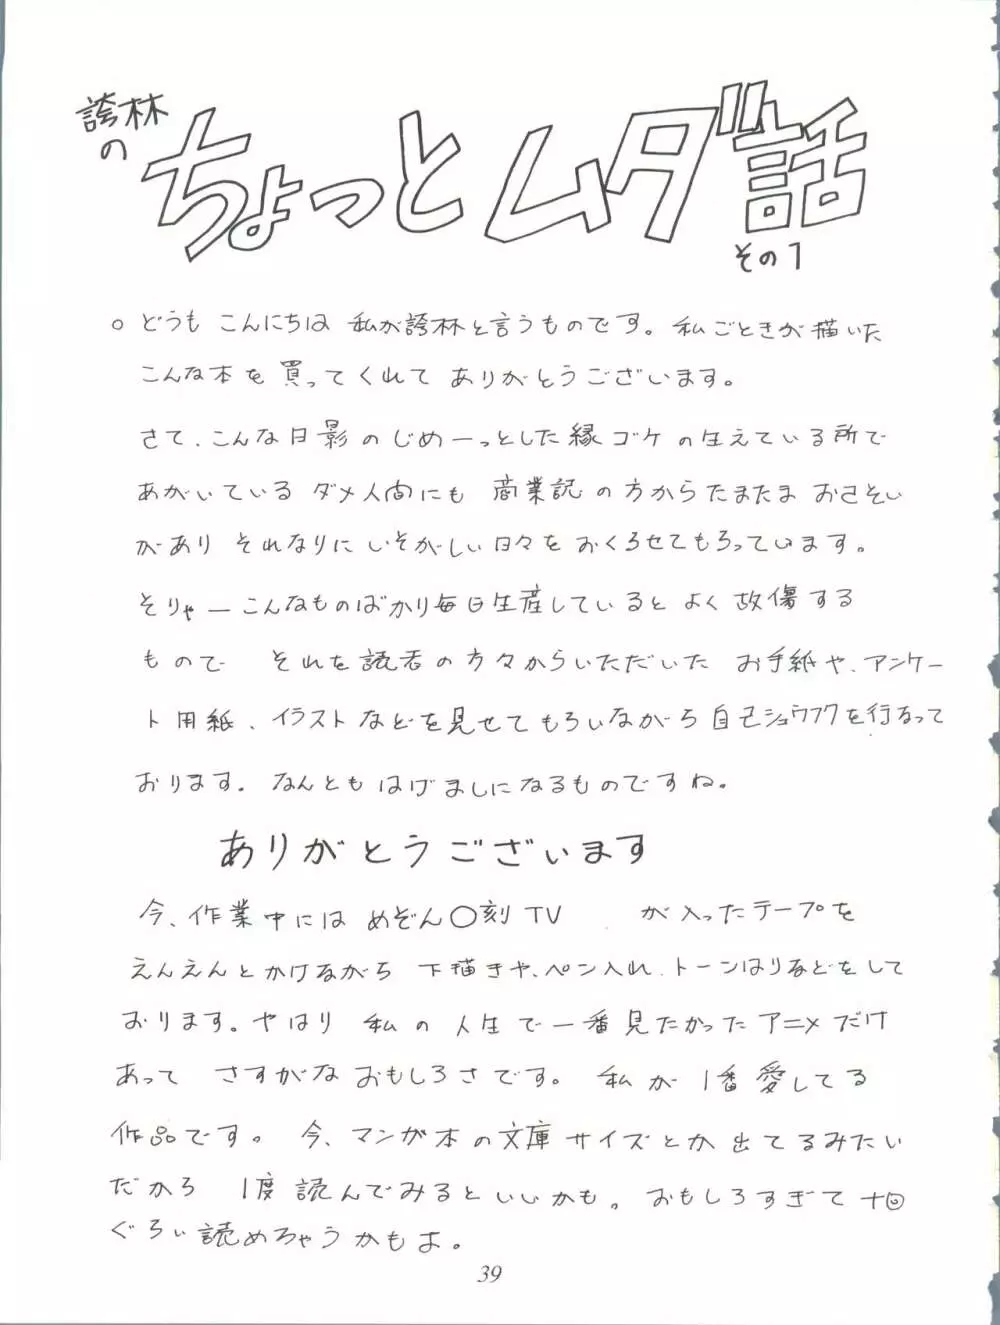 誇林
の
ちょっとムダ話
その1
○ どうも こんにちは 私が誇林と言うものです。私ごときが描いた
こんな本を買ってくれて ありがとうございます。
さて、こんな日影のじめーっとした縁ゴケの生えている所で
あがいているダメ人間にも 商業誌の方からたまたま おさそい
があり それなりにいそがしい日々をおくらせてもらっています。
そりゃーこんなものばかり毎日生産していると よく故傷する
もので それを読者の方々からいただいた お手紙や、アンケー
ト用紙、イラストなどを見せてもらいながら自己ショウフクを行なって
おります。なんともはげましになるものですね。
ありがとうございます
今、作業中には めぞん〇刻 TV が入ったテープを
えんえんとかけながら 下描きや、ペン入れ、トーンはりなどをして
おります。やはり 私の人生で一番見たかったアニメだけ
あって さすがなおもしろさです。私が1番愛してる
作品です。今、マンガ本の文庫サイズとか出てるみたい
だから 1度読んでみるといいかも。おもしろすぎて十回
ぐらい読めちゃうかもよ。
39